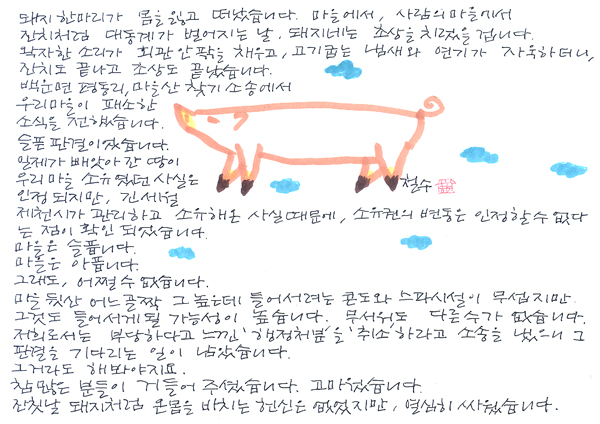 돼지 한마리가 몸을 잃고 떠났습니다. 마을에서, 사람의 마을에서
잔치처럼 대동계가 벌어지는 날, 돼지네는 초상을 치렀을 겁니다.
왁자한 소리가 회관 안팎을 채우고, 고기굽는 냄새와 연기가 자욱하더니,
잔치도 끝나고 초상도 끝났습니다.
백운면 평동리, 마을산 찾기 소송에서
우리마을이 패소한
소식을 전했습니다.
슬픈 판결이었습니다.
일제가 빼앗아 간 땅이
우리 마을 소유였던 사실은
인정 되지만, 긴 세월
제천시가 관리하고 소유해온 사실 때문에, 소유권의 변동은 인정할 수 없다
는 점이 확인 되었습니다.
마을은 슬픕니다.
마을은 아픕니다.
그래도, 어쩔 수 없습니다.
마을 뒷산 어느 골짝 그 높은데 들어서려는 콘도와 스파시설이 무섭지만
그것도 들어서게 될 가능성이 높습니다. 무서워도 다른 수가 없습니다.
저희로서는 부당하다고 느낀 '행정처분'을 '취소'하라고 소송을 냈으니 그
판결을 기다리는 일이 남았습니다.
그거라도 해봐야지요.
참 많은 분들이 거들어 주셨습니다. 고마웠습니다.
잔칫날 돼지처럼 온몸을 바치는 헌신은 없었지만, 열심히 싸웠습니다.
철수